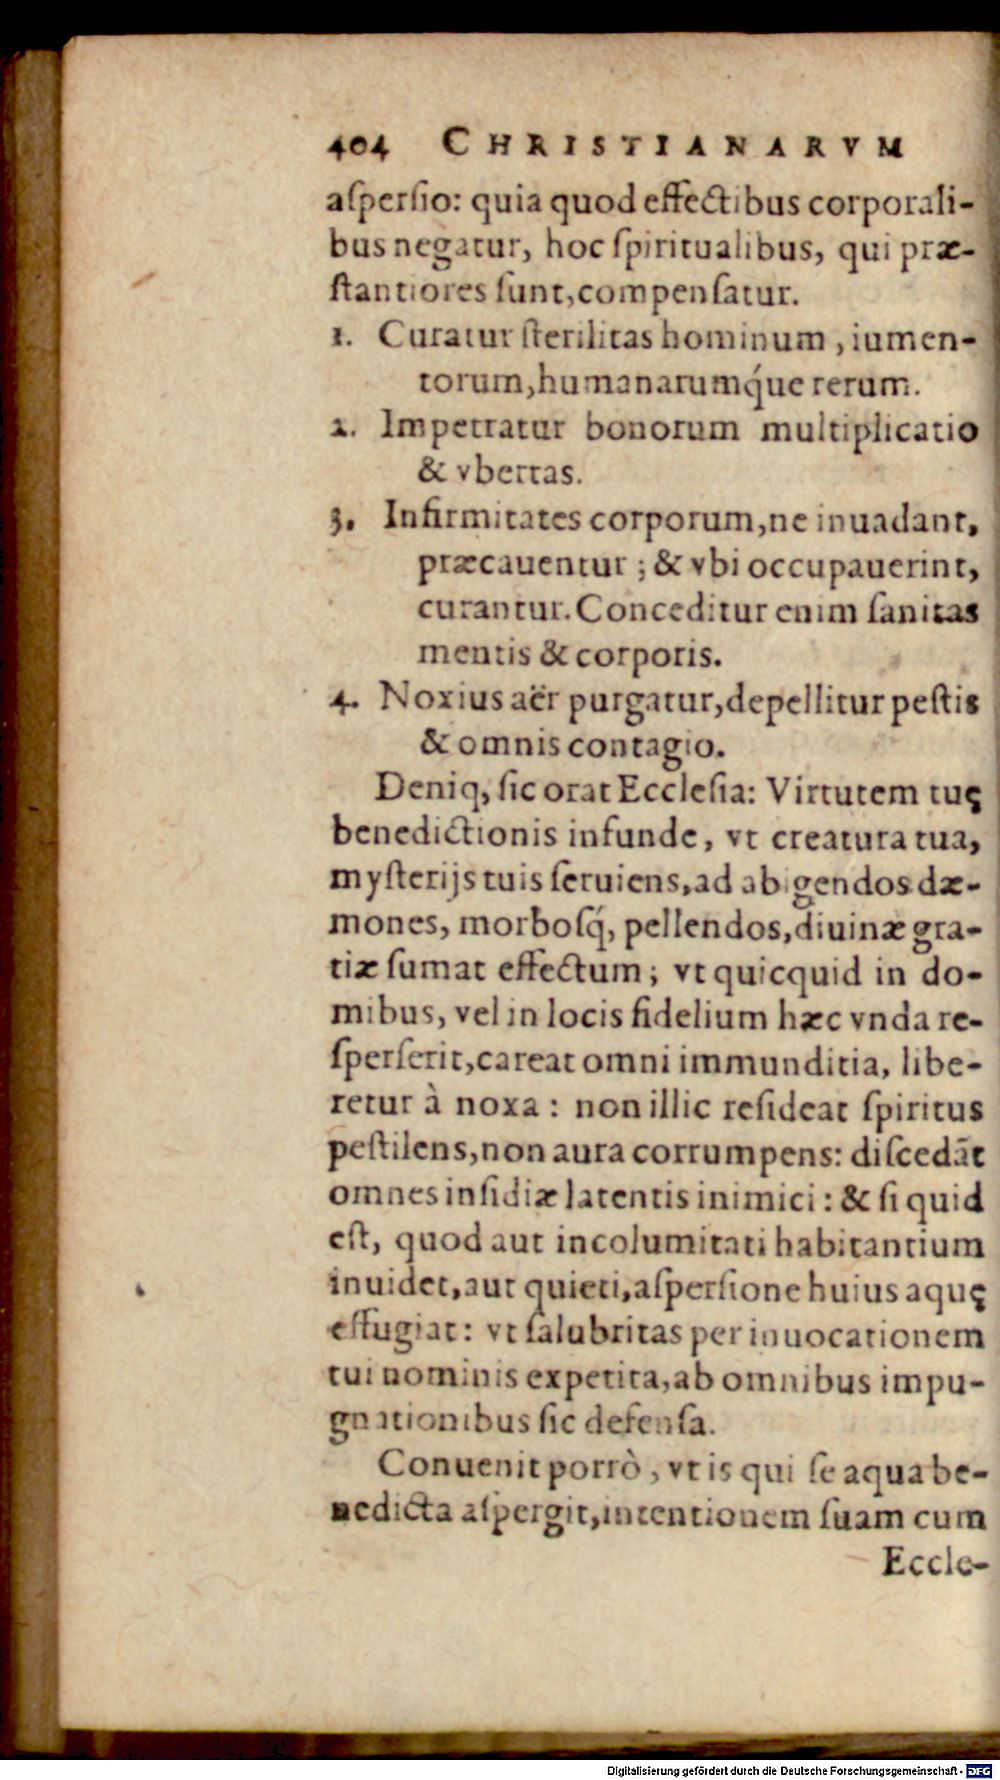 404 CHRISTIANARVM
aſperſio: quia quod effectibus corporali-
bus negatur, hoc ſpiritualibus, qui præ-
ſtantiores ſunt, compenſatur.
1. Curatur ſterilitas hominum, iumen-
torum, humanarumq́ue rerum.
2. Impetratur bonorum multiplicatio
& vbertas.
3. Infirmitates corporum, ne inuadant,
præcauentur; & vbi occupauerint,
curantur. Conceditur enim ſanitas
mentis & corporis.
4. Noxius aër purgatur, depellitur peſtis
& omnis contagio.
Deniq, ſic orat Eccleſia: Virtutem tuę
benedictionis infunde, vt creatura tua,
myſterijs tuis ſeruiens, ad abigendos dæ-
mones, morboſq́, pellendos, diuinæ gra-
tiæ ſumat effectum; vt quicquid in do-
mibus, vel in locis fidelium hæc vnda re-
ſperſerit, careat omni immunditia, libe-
retur à noxa: non illic reſideat ſpiritus
peſtilens, non aura corrumpens: diſcedāt
omnes inſidiæ latentis inimici: & ſi quid
eſt, quod aut incolumitati habitantium
inuidet, aut quieti, aſperſione huius aquę
effugiat: vt ſalubritas per inuocationem
tui nominis expetita, ab omnibus impu-
gnationibus ſic defenſa.
Conuenit porrò, vt is qui ſe aqua be-
nedicta aſpergit, intentionem ſuam cum
Eccle-
Digitalisierung gefördert durch die Deutsche Forschungsgemeinschaft - DFG